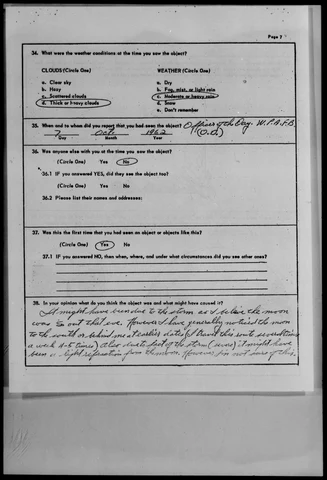 Page 7
34. What were the weather conditions at the time you saw the object?
CLOUDS (Circle One) WEATHER (Circle One)
a. Clear sky a. Dry
b. Hazy b. Fog, mist, or light rain
c. Scattered clouds c. Moderate or heavy rain
d. Thick or heavy clouds d. Snow
e. Don't remember
35. When and to whom did you report that you had seen the object? Officer of the Day. W.P.A.F.B.
7 Oct 1962 (O.D.)
Day Month Year
36. Was anyone else with you at the time you saw the object?
(Circle One) Yes No
36.1 IF you answered YES, did they see the object too?
(Circle One) Yes No
36.2 Please list their names and addresses:
37. Was this the first time that you had seen an object or objects like this?
(Circle One) Yes No
37.1 IF you answered NO, then when, where, and under what circumstances did you see other ones?
38. In your opinion what do you think the object was and what might have caused it?
It might have been due to the storm as I believe the moon
was out that eve. However I have generally noticed the moon
to the south or behind me at earlier dates (I travel this route several times
a week 4-5 times) Also due to part of the storm ( ) it might have
been a light refraction from the moon. However I'm not sure of this.